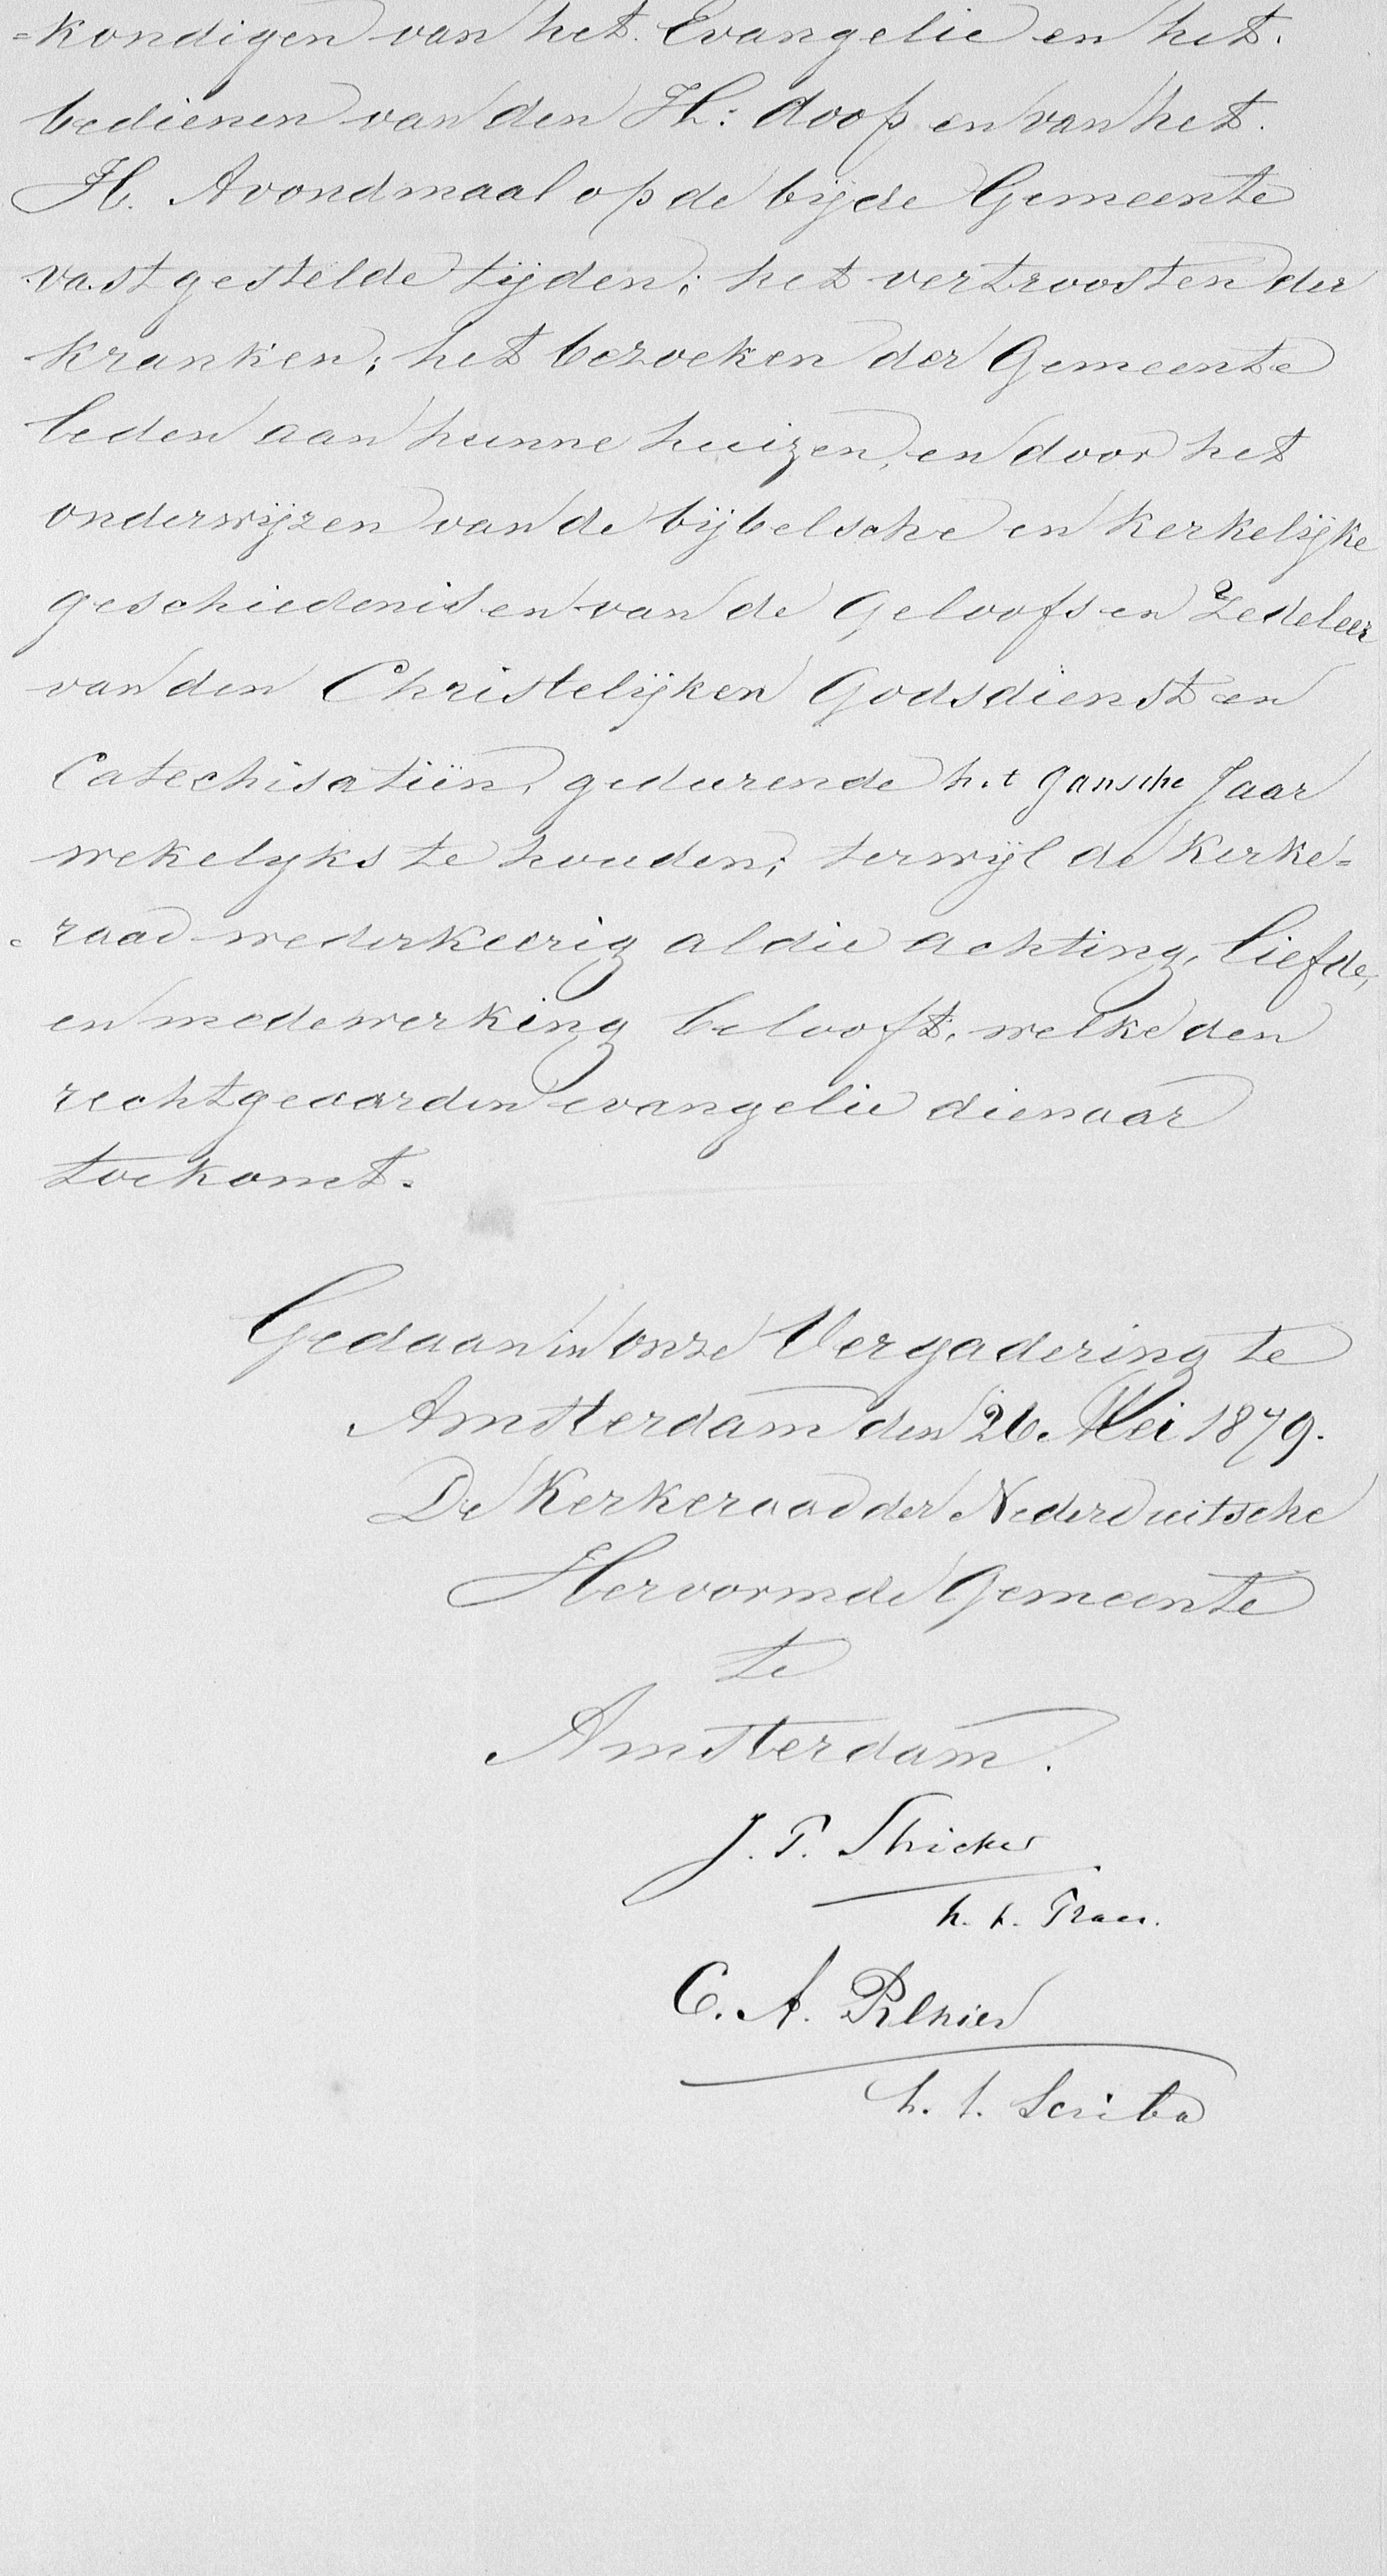 =kondigen van het Evangelie en het.
bedienen van den H: doop en van het.
H. Avondmaal op de bijde Gemeente
vastgestelde tijden; het vertroosten der
kranken; het bezoeken der Gemeente
leden aan hunne huizen, en door het
onderwijzen van de bijbelsche en kerkelijke
geschiedenis en van de Geloofs en Zedeleer
van den Christelijken Godsdienst en
Catechisatiën, gedurende het gansche Jaar
wekelyks te houden; terwijl de Kerke=
=raad wederkeerig al die achting, liefde,
en medewerking belooft, welke den
rechtgeaarden evangelie dienaar
toekomt.
Gedaan in onze Vergadering te
Amsterdam den 26 Mei 1879.
De Kerkeraad der Nederduitsche
Hervormde Gemeente
te
Amsterdam.
J. P. Stricker
h. t. Praes.
C. A.
h. t. Scriba